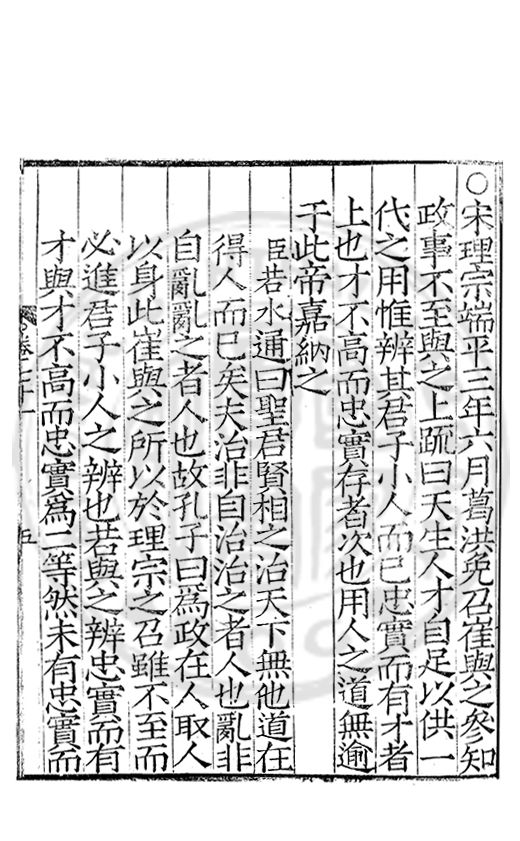 ○宋理宗端平三年六月葛洪免召崔與之參知
政事不至與之上疏曰天生人才自足以供一
代之用惟辨其君子小人而已忠實而有才者
上也才不高而忠實存者次也用人之道無逾
于此帝嘉納之
臣若水通曰聖君賢相之治天下無他道在
得人而已矣夫治非自治治之者人也亂非
自亂亂之者人也故孔子曰爲政在人取人
以身此崔與之所以於理宗之召雖不至而
必進君子小人之辨也若與之辨忠實而有
才與才不高而忠實爲二等然未有忠實而
五